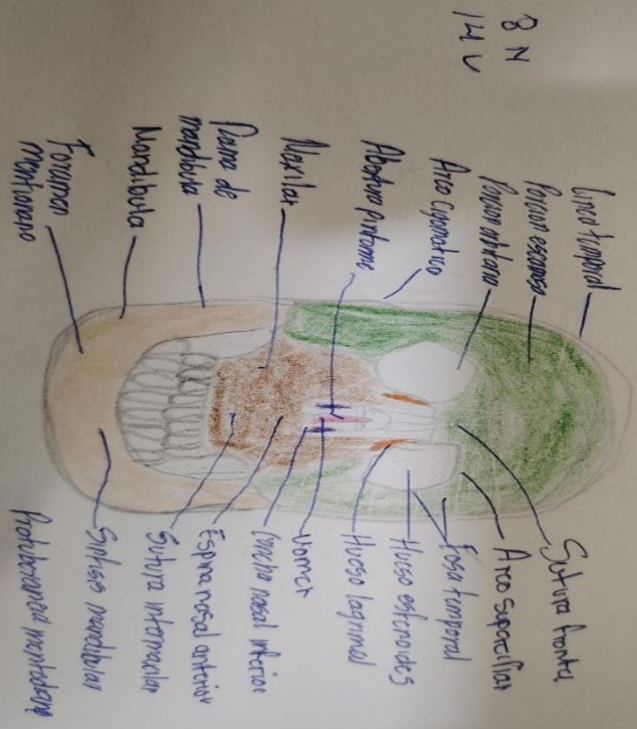 8 N
14 V
Linea temporal
Porcion escamosa
Porcion orbitaria
Arco cigomatico
Abertura piriforme
Maxilar
Rama de
mandibula
Mandibula
Foramen
mentoniano
Sutura frontal
Arco superciliar
Fosa temporal
Hueso esfenoides
Hueso lagrimal
vomer
Concha nasal inferior
Espina nasal anterior
Sutura intermaxilar
Sinfisis mandibular
Protuberancia mentoniana